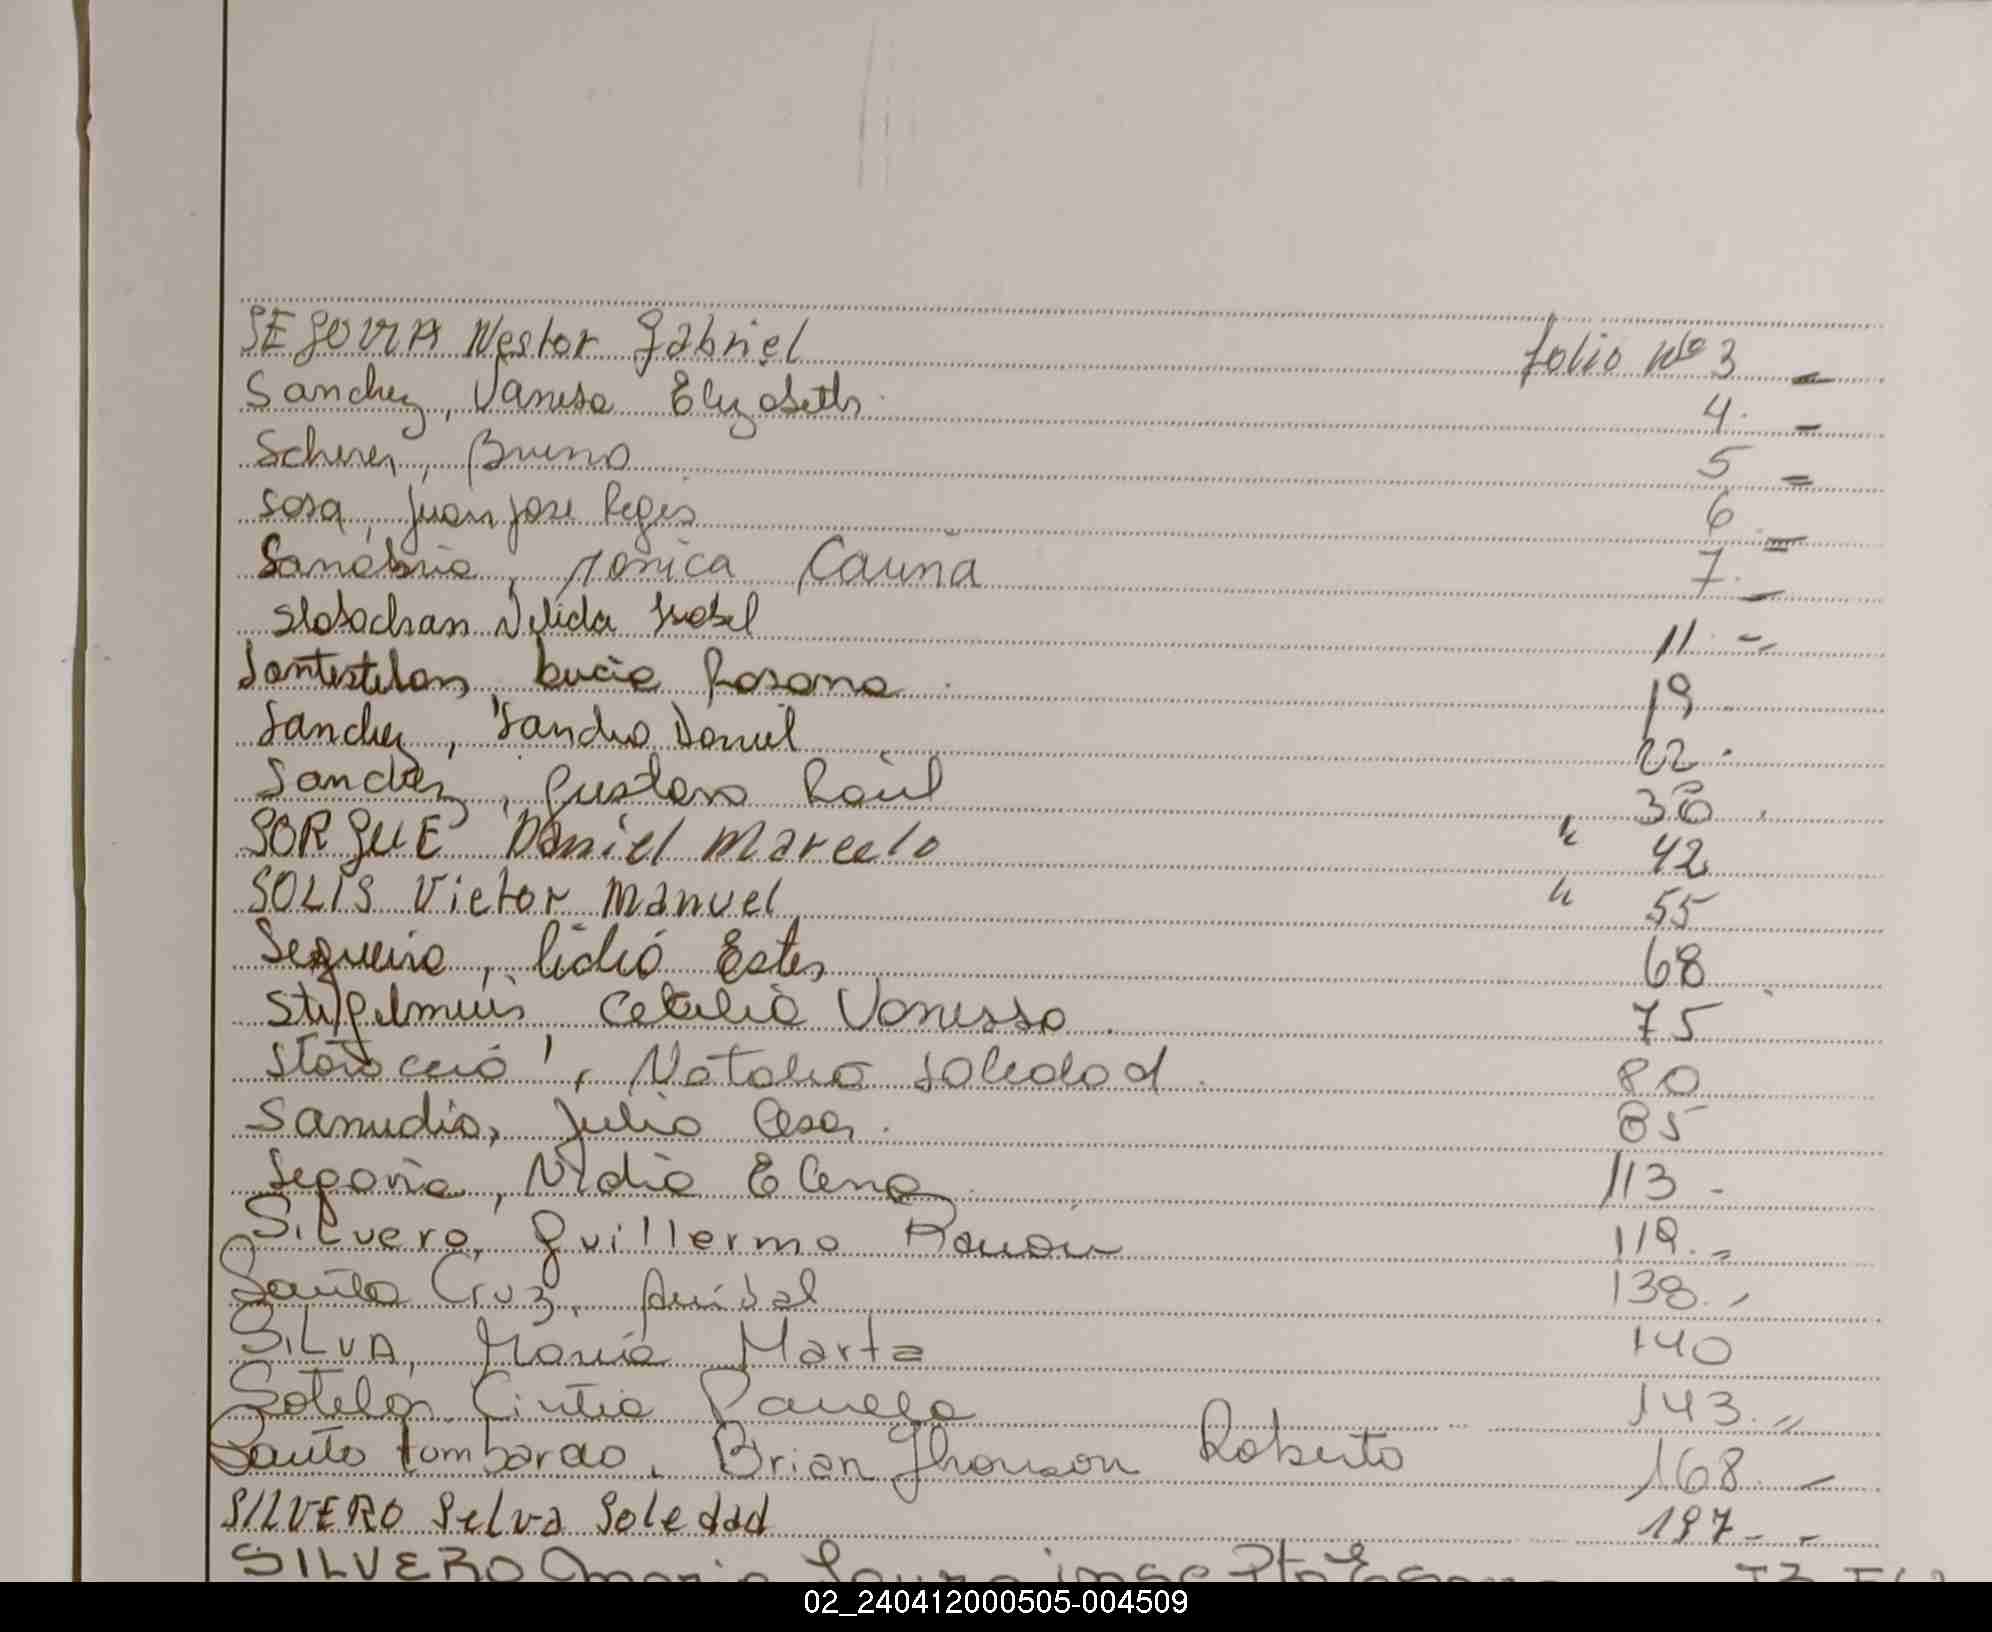 SEGOVIA Nestor Gabriel folio Nº 3
Sanchez, Vanesa Elyzabeth 4.
Scherer, Bruno 5
Sosa, Juan Jose Regis 6
Sanabria, Monica Carina 7.
Slobochan Nelida Isabel 11
Santestelan, Lucia Rosana 19
Sanchez, Sandro Daniel 22
Sanchez, Gustavo Raúl 30
SORGUE Daniel Marcelo " 42
SOLIS Victor Manuel " 55
Sequeira, Lidia Ester 68
Vanessa 75
Natalia Soledad 80
Samudio, Julio Cesar 85
Segovia, Nidia Elena 113 -
Silvero, Guillermo Ramón 119.=
Santa Cruz, Anibal 138.-
SiLVA, Maria Marta 140
Sotelo, Cintia 143.=
Santo Lombardo, Brian Jhonson Roberto 168 -
SILVERO Selva Soledad 197- -
SILVERO Maria Laura
02_240412000505-004509